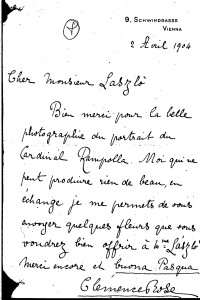 9, SCHWINDGASSE
VIENNA
2 Avril 1904
Cher Monsieur Laszló
Bien merci pour la belle
photographie du portrait du
Cardinal Rampolla. Moi qui ne
peut produire rien de beau, en
échange je me permets de vous
envoyer quelques fleurs que vous
voudrez bien offrir à Mme Laszló
Merci encore et buona Pasqua
Clémence Rose